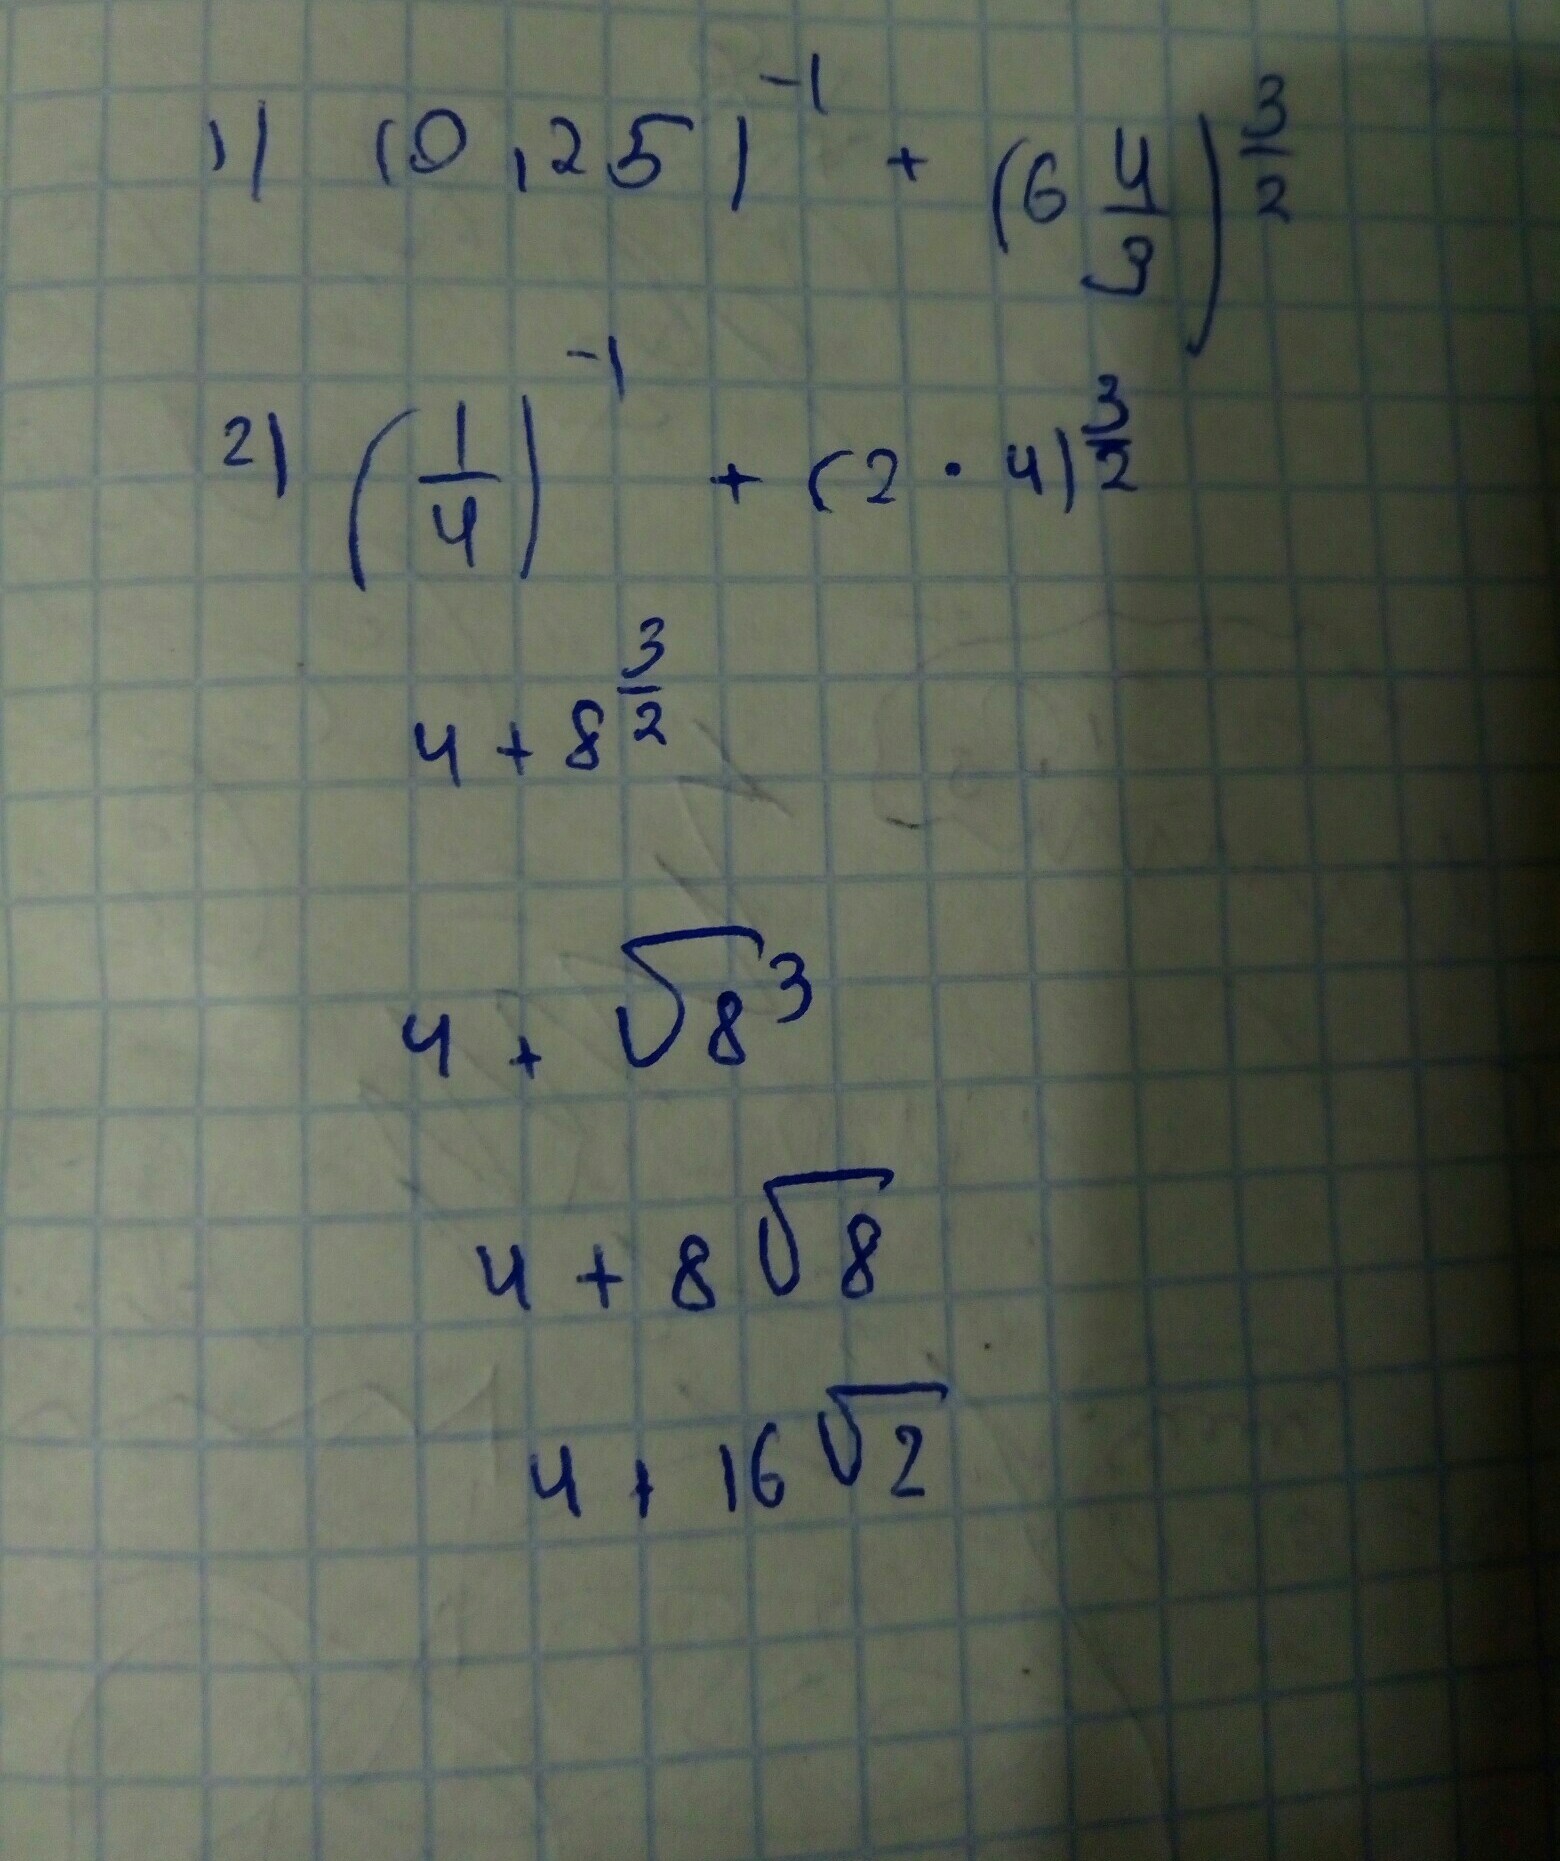 1) (0,25)^{-1} + (6 \frac{4}{3})^{\frac{3}{2}}
2) (\frac{1}{4})^{-1} + (2 · 4)^{\frac{3}{2}}
4 + 8^{\frac{3}{2}}
4 + √8³
4 + 8√8
4 + 16√2